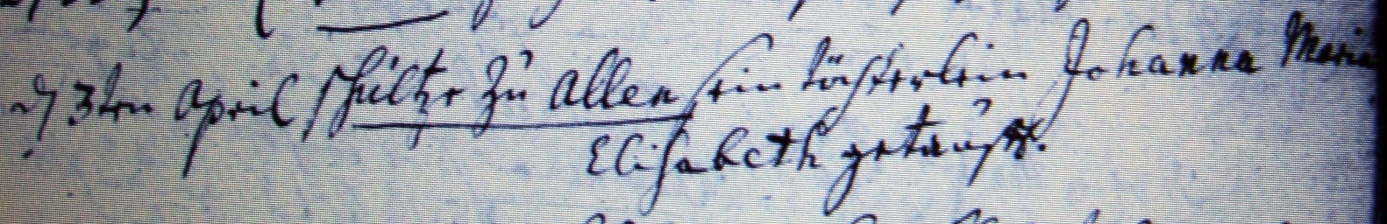 d 3ten April Schültze zu Allen sein töchterlein Johanna Maria
Elisabeth getauft.